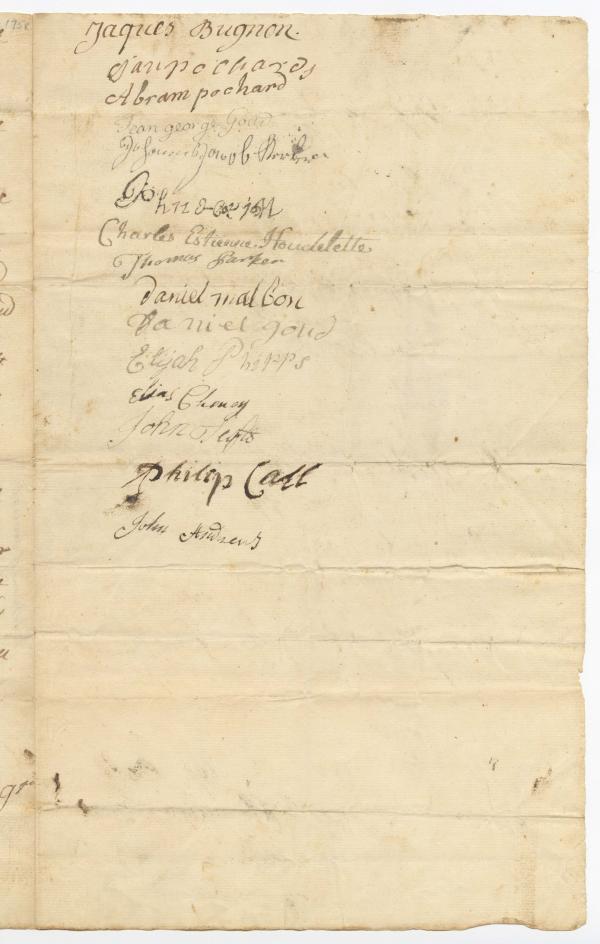 Jaques Bugnon.
Jan pochards
Abram pochard
Jean george Goud
Jacob
John
Charles Estienne Houdelette
Thomas Parker
daniel malbon
Daniel goud
Elijah Phipps
Elias Cheney
John Tufts
Philip Call
John Andrews